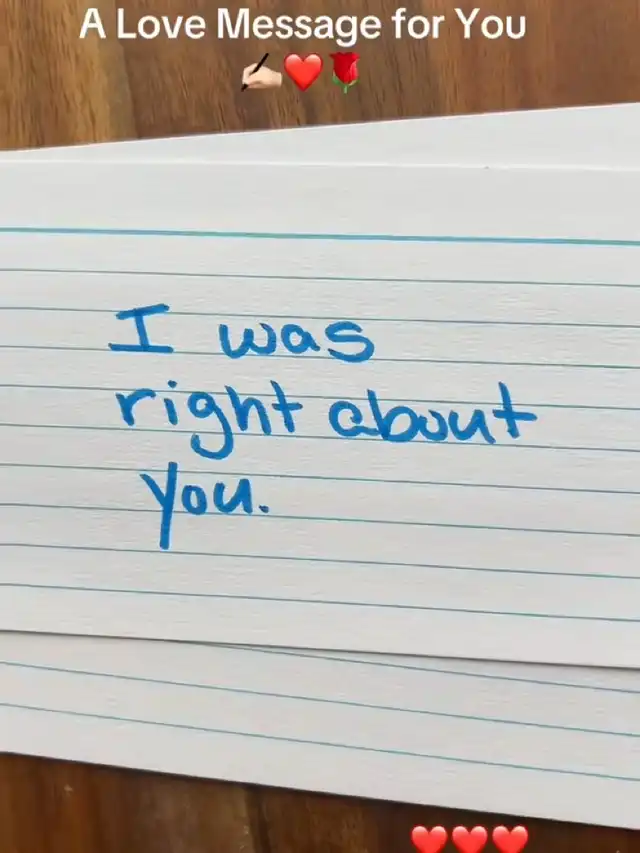 A Love Message for You
✍🏻❤️🌹
I was
right about
you.
❤️❤️❤️